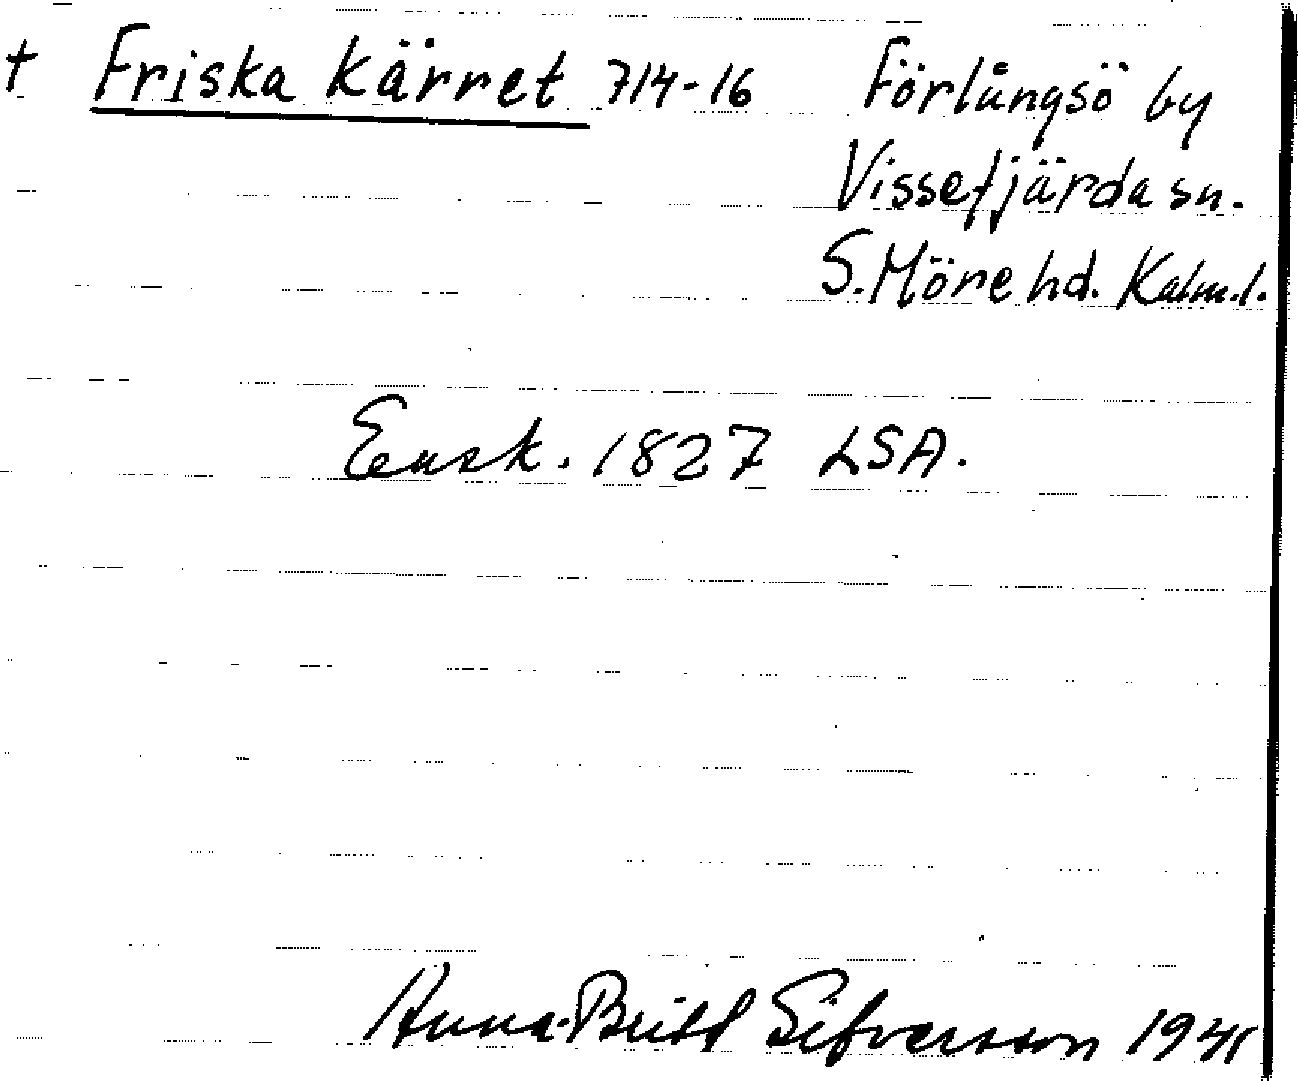 † Friska Kärret 714-16 Förlångsö by
Vissefjärda sn.
S. Möre hd. Kalm. l.
Ensk. 1827 LSA.
Anna-Britt Sifversson